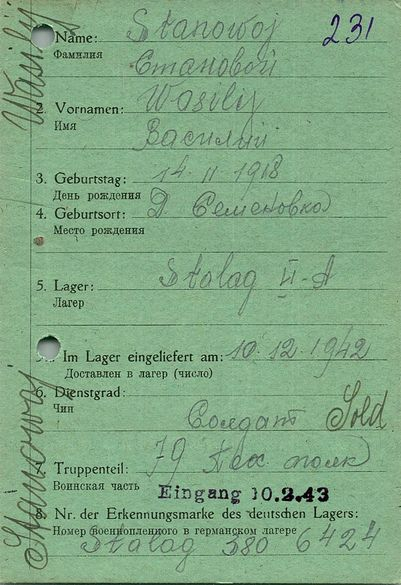 231
Wasilij
Stanowoj
Name: Stanowoj
Фамилия
Становой
2. Vornamen: Wasilij
Имя
Василий
3. Geburtstag: 14. 11 1918
День рождения
4. Geburtsort: Д Семеновка
Место рождения
5. Lager: Stalag II-A
Лагер
Im Lager eingeliefert am: 10.12.1942
Доставлен в лагер (число)
6. Dienstgrad:
Чин
Солдат Sold
7. Truppenteil: 79 Пех полк
Воинская часть
Eingang 10.2.43
8. Nr. der Erkennungsmarke des deutschen Lagers:
Номер военнопленного в германском лагере
Stalag 380 6424